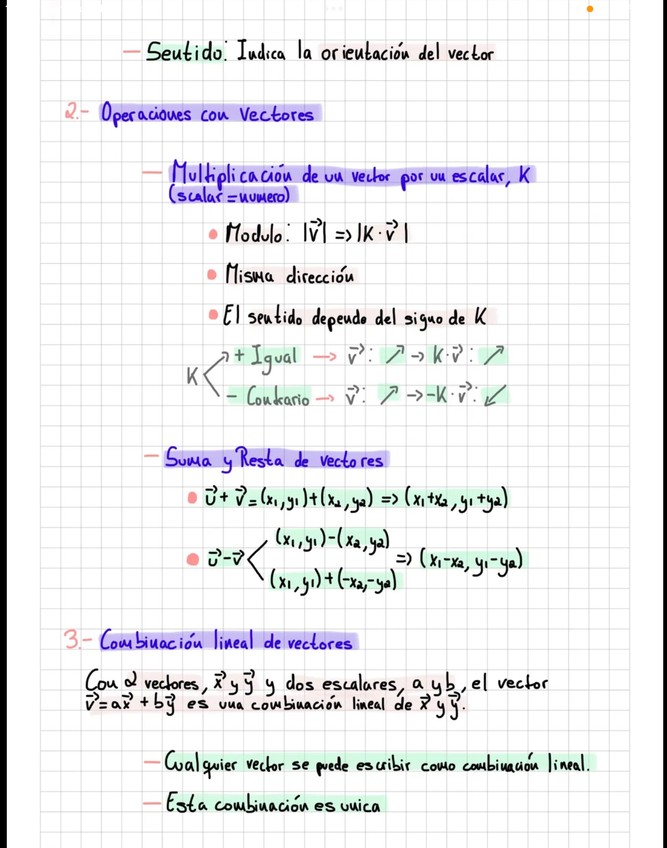 — Sentido: Indica la orientación del vector
2.- Operaciones con Vectores
— Multiplicación de un vector por un escalar, K
(scalar = numero)
• Modulo: |v⃗| => |K·v⃗|
• Misma dirección
• El sentido depende del signo de K
K
+ Igual → v⃗: ↗ → K·v⃗: ↗
- Contrario → v⃗: ↗ → -K·v⃗: ↙
— Suma y Resta de vectores
• u⃗ + v⃗ = (x₁, y₁) + (x₂, y₂) => (x₁+x₂, y₁+y₂)
• u⃗ - v⃗ < (x₁, y₁) - (x₂, y₂)
(x₁, y₁) + (-x₂, -y₂) => (x₁-x₂, y₁-y₂)
3.- Combinación lineal de vectores
Con 2 vectores, x⃗ y y⃗ y dos escalares, a y b, el vector
v⃗ = ax⃗ + by⃗ es una combinación lineal de x⃗ y y⃗.
— Cualquier vector se puede escribir como combinación lineal.
— Esta combinación es unica